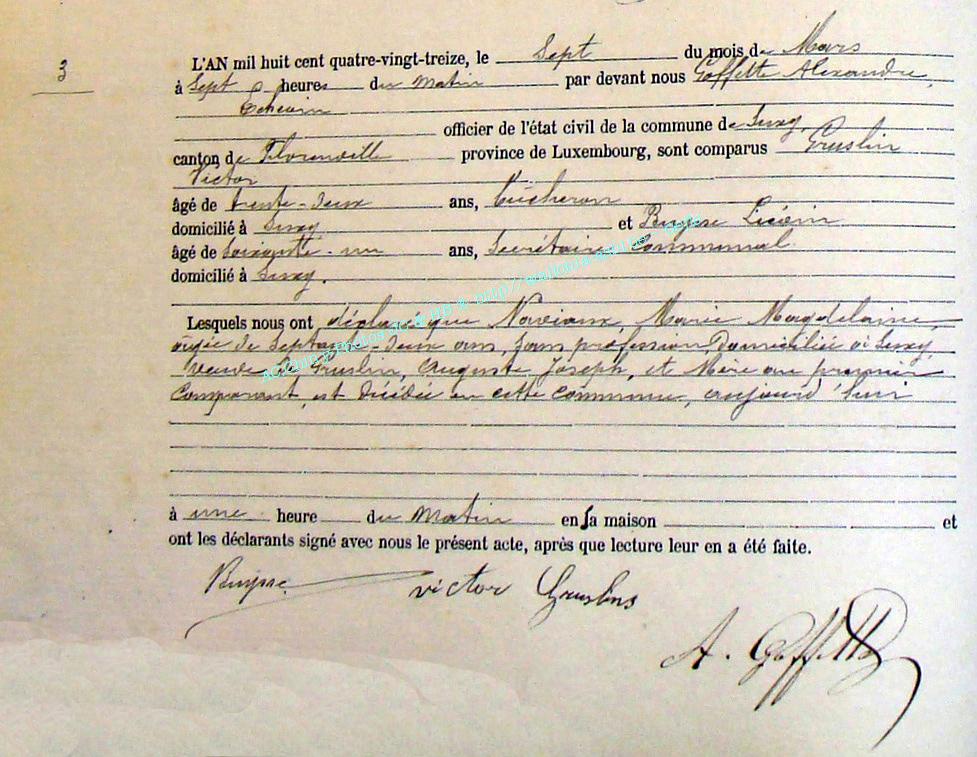 3
L'AN mil huit cent quatre-vingt-treize, le Sept du mois de Mars
à Sept heures du Matin par devant nous Goffette Alexandre,
Echevin
officier de l'état civil de la commune de Suxy,
canton de Florenville province de Luxembourg, sont comparus Gruslin
Victor
âgé de trente-deux ans, bûcheron
domicilié à Suxy et Buysse Liévin
âgé de Soixante-un ans, Secrétaire Communal
domicilié à Suxy.
Lesquels nous ont déclaré que Noviaux, Marie Magdelaine,
âgée de Septante-deux ans, sans profession, domiciliée à Suxy,
veuve de Gruslin, Auguste Joseph, et Mère au premier
Comparant, est décédée en cette commune, aujourd'hui
à une heure du Matin en sa maison et
ont les déclarants signé avec nous le présent acte, après que lecture leur en a été faite.
Buysse victor Gruslins
A. Goffette